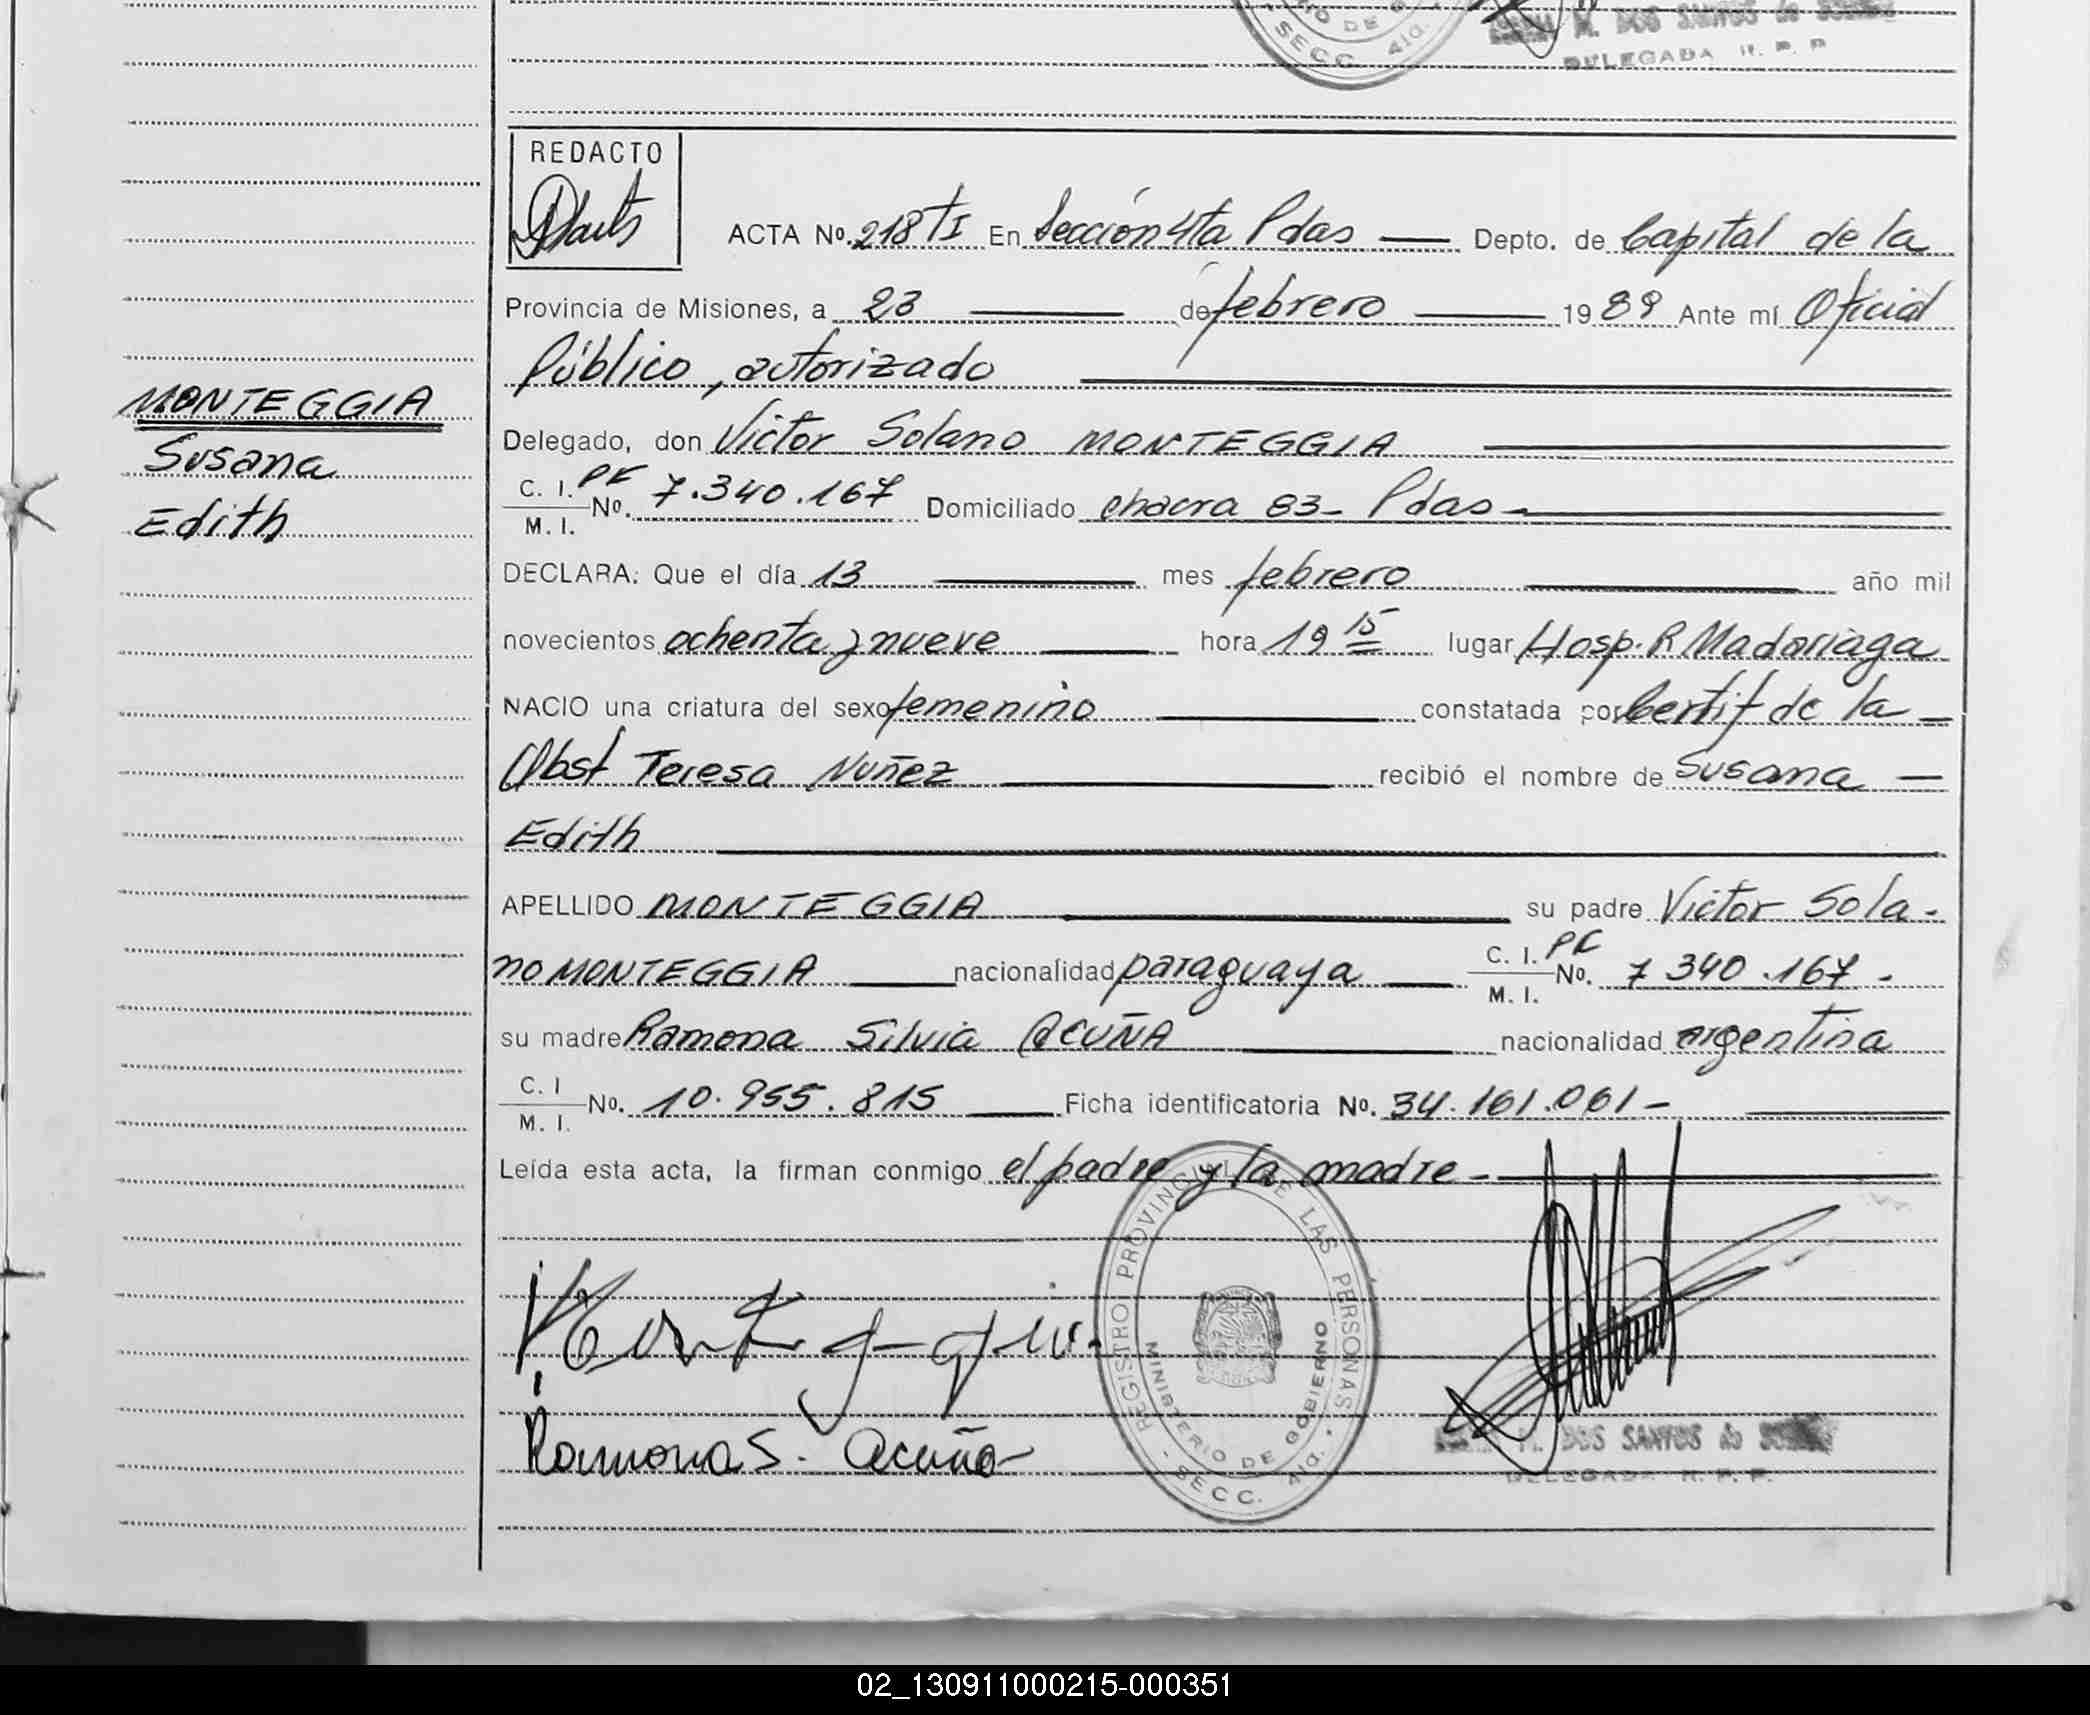 M. DOS SANTOS de
DELEGADA R. P. P.
SECC. 4ta.
REDACTO
ACTA Nº. 218 TI En Sección 4ta Pdas Depto. de Capital de la
Provincia de Misiones, a 23 de febrero 1989 Ante mí Oficial
Público, autorizado
MONTEGGIA
Susana
Edith
Delegado, don Victor Solano MONTEGGIA
C. I. PF
M. I. Nº. 7.340.167 Domiciliado chacra 83- Pdas-
DECLARA: Que el día 13 mes febrero año mil
novecientos ochenta y nueve hora 19 15 lugar Hosp. R Madariaga
NACIO una criatura del sexo femenino constatada por Certif de la
Obst Teresa Nuñez recibió el nombre de Susana
Edith
APELLIDO MONTEGGIA su padre Victor Sola-
no MONTEGGIA nacionalidad paraguaya C. I. PF M. I. Nº. 7 340.167-
su madre Ramona Silvia ACUÑA nacionalidad argentina
C. I M. I. Nº. 10.955.815 Ficha identificatoria Nº. 34.161.061-
Leída esta acta, la firman conmigo el padre y la madre-
REGISTRO PROVINCIAL DE LAS PERSONAS
MINISTERIO DE GOBIERNO
SECC. 4ta.
Ramona S. Acuña
M. DOS SANTOS de
DELEGADA R. P. P.
02_130911000215-000351